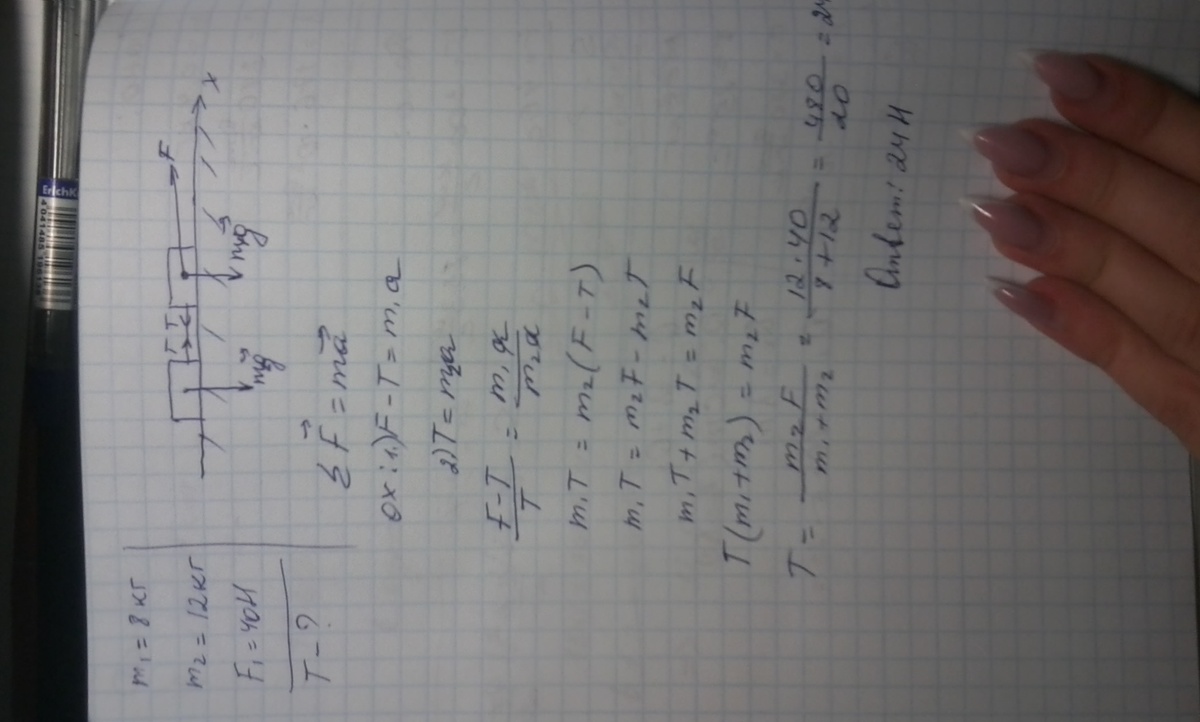 m₁ = 8кг
m₂ = 12кг
F₁ = 40Н
T - ?
T T F X
mg mg
Σ F = ma
ox: 1.) F - T = m₁a
2) T = m₂a
(F - T)/T = m₁a/m₂a
m₁T = m₂(F - T)
m₁T = m₂F - m₂T
m₁T + m₂T = m₂F
T(m₁ + m₂) = m₂F
T = m₂F/(m₁ + m₂) = 12·40/(8 + 12) = 480/20 = 24
Ответ: 24 Н
ErichK